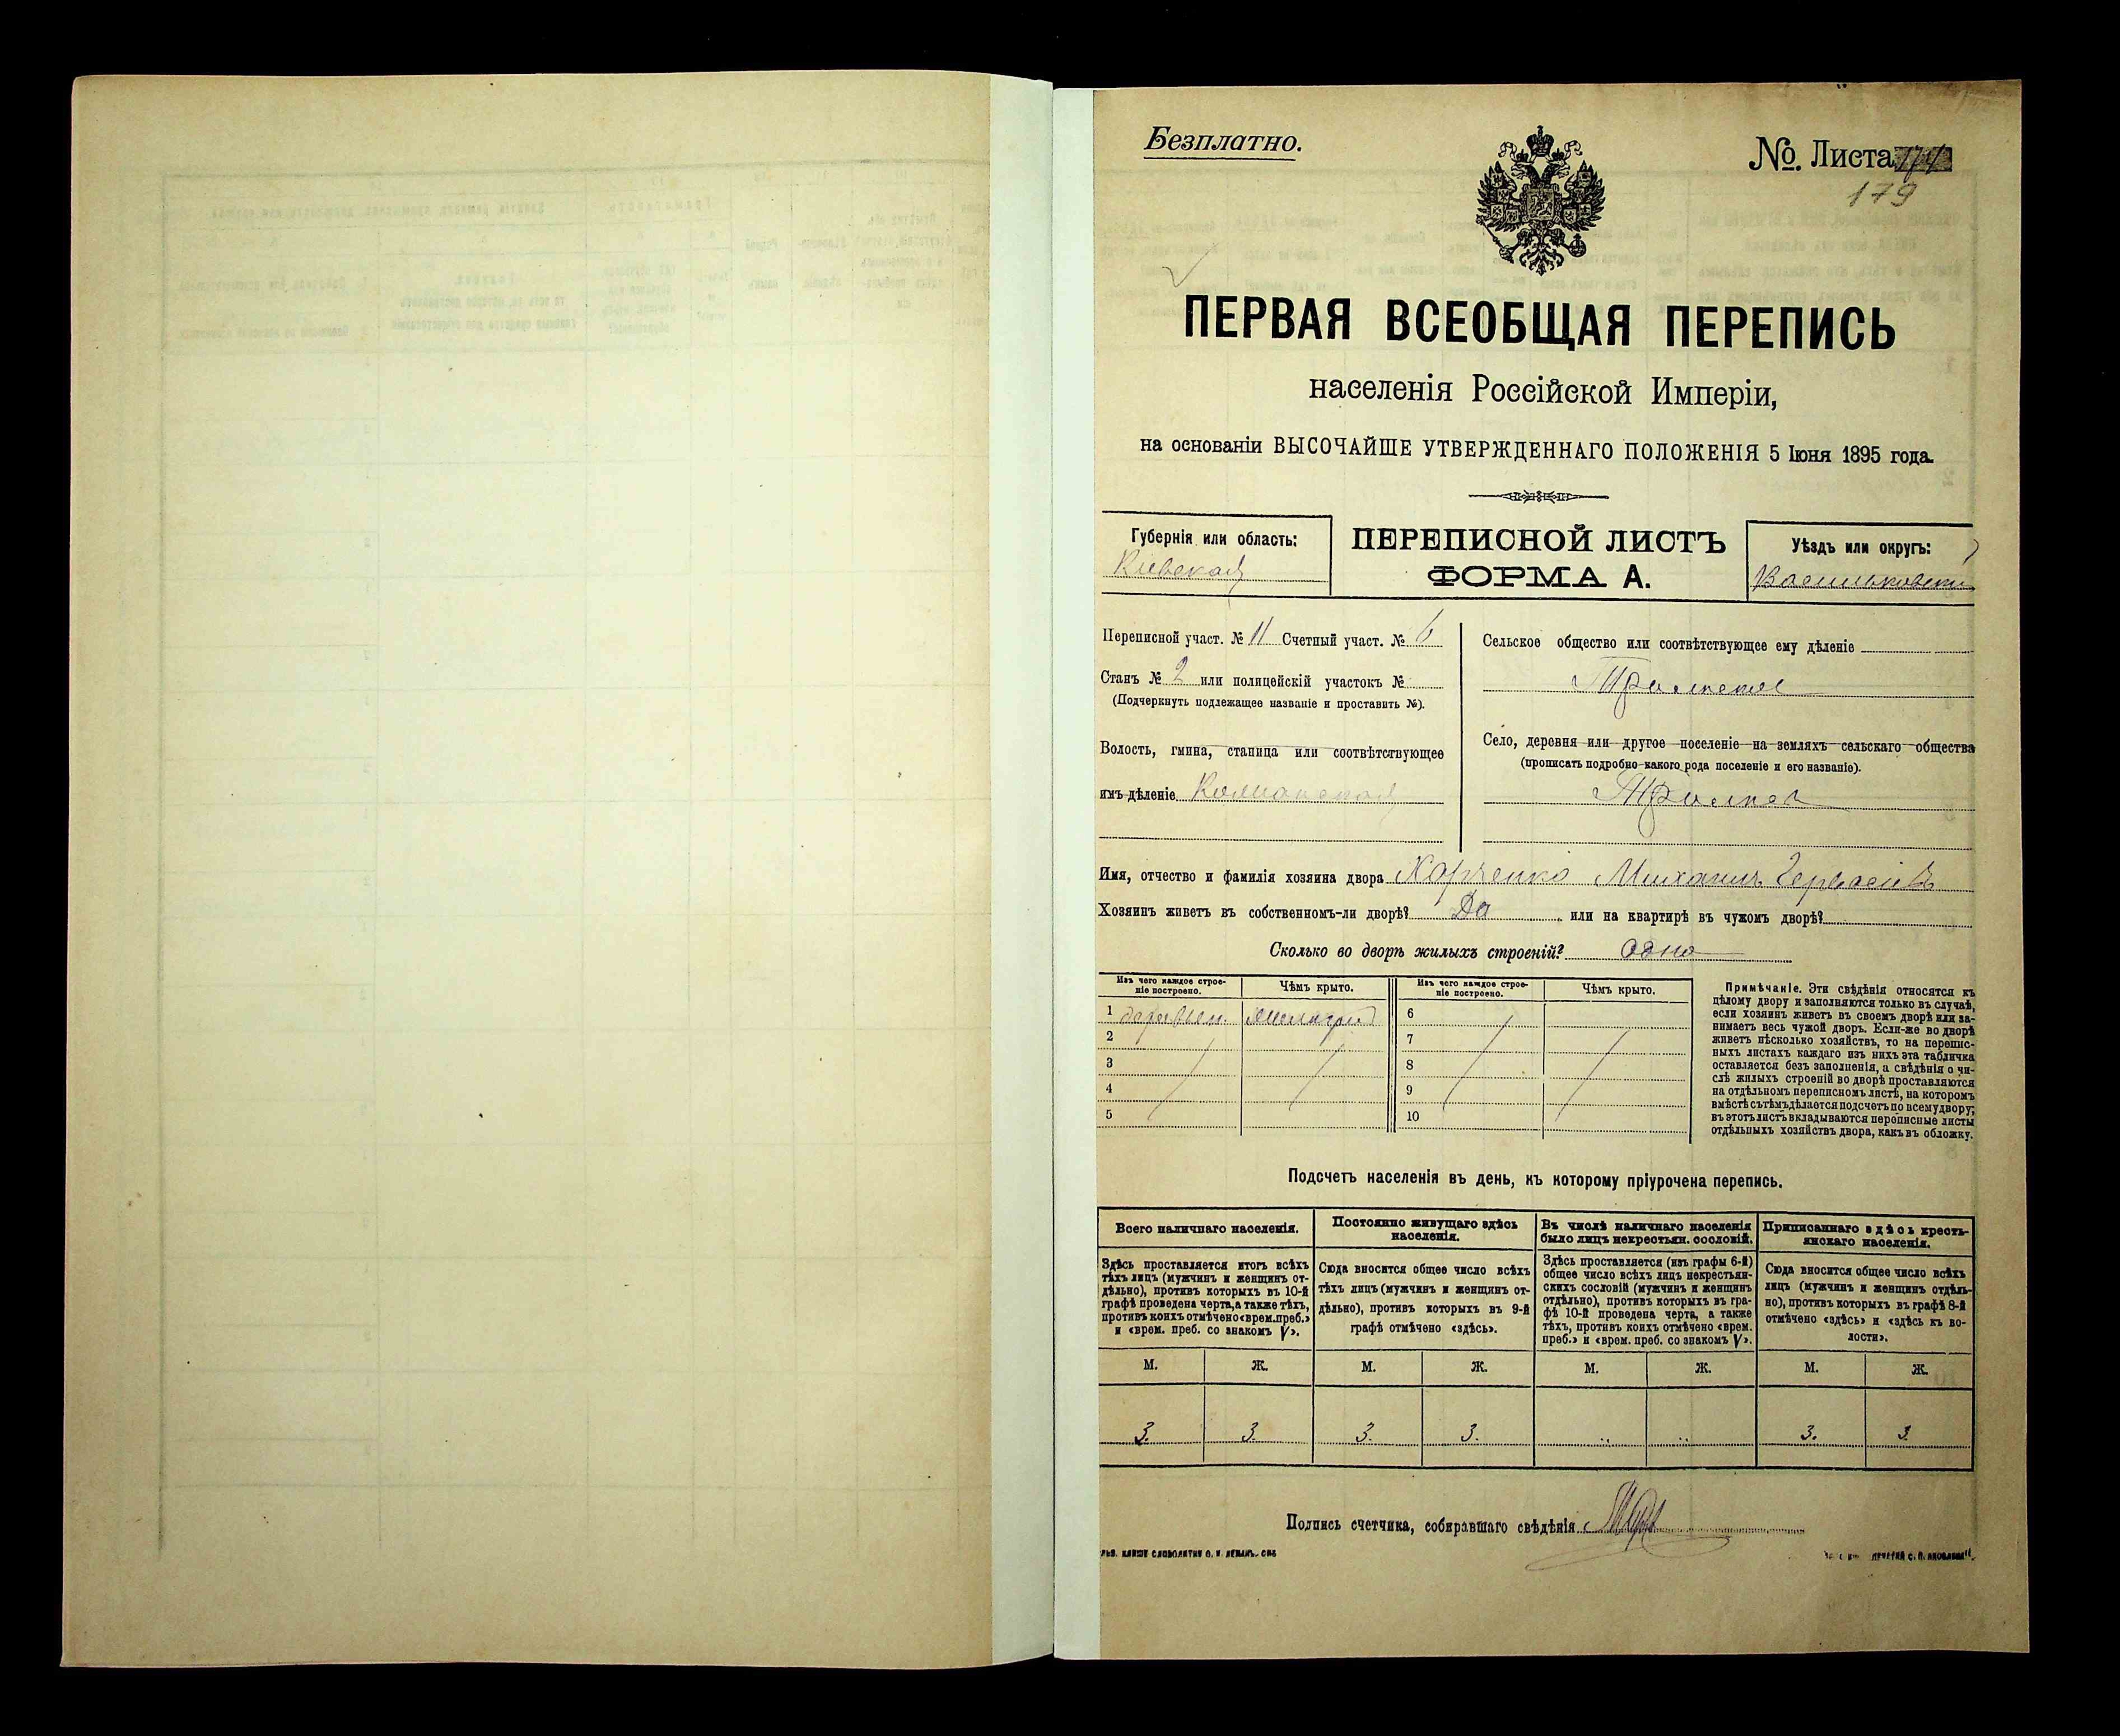 Безплатно.
№. Листа
179
ПЕРВАЯ ВСЕОБЩАЯ ПЕРЕПИСЬ
населенія Россійской Имперіи,
на основаніи ВЫСОЧАЙШЕ УТВЕРЖДЕННАГО ПОЛОЖЕНІЯ 5 Іюня 1895 года.
Губернія или область:
Кіевская
ПЕРЕПИСНОЙ ЛИСТЪ
ФОРМА А.
Уѣздъ или округъ:
Васильковскій
Переписной участ. № 11 Счетный участ. № 6
Станъ № 2 или полицейскій участокъ №
(Подчеркнуть подлежащее названіе и проставить №).
Волость, гмина, станица или соотвѣтствующее
имъ дѣленіе
Сельское общество или соотвѣтствующее ему дѣленіе
Село, деревня или другое поселеніе на земляхъ сельскаго общества
(прописать подробно какого рода поселеніе и его названіе).
Имя, отчество и фамилія хозяина двора Харченко Михаилъ Гервасіевъ
Хозяинъ живетъ въ собственномъ-ли дворѣ? Да или на квартирѣ въ чужомъ дворѣ?
Сколько во дворѣ жилыхъ строеній? одно
Изъ чего каждое строе-
ніе построено.
Чѣмъ крыто.
Изъ чего каждое строе-
ніе построено.
Чѣмъ крыто.
1 деревян.
2
3
4
5
6
7
8
9
10
Примѣчаніе. Эти свѣдѣнія относятся къ
цѣлому двору и заполняются только въ случаѣ,
если хозяинъ живетъ въ своемъ дворѣ или за-
нимаетъ весь чужой дворъ. Если-же во дворѣ
живетъ нѣсколько хозяйствъ, то на перепис-
ныхъ листахъ каждаго изъ нихъ эта табличка
оставляется безъ заполненія, а свѣдѣнія о чи-
слѣ жилыхъ строеній во дворѣ проставляются
на отдѣльномъ переписномъ листѣ, на которомъ
вмѣстѣ съ тѣмъ дѣлается подсчетъ по всему двору;
въ этотъ листъ вкладываются переписные листы
отдѣльныхъ хозяйствъ двора, какъ въ обложку.
Подсчетъ населенія въ день, къ которому пріурочена перепись.
Всего наличнаго населенія.
Здѣсь проставляется итогъ всѣхъ
тѣхъ лицъ (мужчинъ и женщинъ от-
дѣльно), противъ которыхъ въ 10-й
графѣ проведена черта, а также тѣхъ,
противъ коихъ отмѣчено «врем. преб.»
и «врем. преб. со знакомъ V».
Постоянно живущаго здѣсь
населенія.
Сюда вносится общее число всѣхъ
тѣхъ лицъ (мужчинъ и женщинъ от-
дѣльно), противъ которыхъ въ 9-й
графѣ отмѣчено «здѣсь».
Въ числѣ наличнаго населенія
было лицъ некрестьян. сословій.
Здѣсь проставляется (изъ графы 6-й)
общее число всѣхъ лицъ некрестьян-
скихъ сословій (мужчинъ и женщинъ
отдѣльно), противъ которыхъ въ гра-
фѣ 10-й проведена черта, а также
тѣхъ, противъ коихъ отмѣчено «врем.
преб.» и «врем. преб. со знакомъ V».
Приписаннаго здѣсь кресть-
янскаго населенія.
Сюда вносится общее число всѣхъ
лицъ (мужчинъ и женщинъ отдѣль-
но), противъ которыхъ въ графѣ 8-й
отмѣчено «здѣсь» и «здѣсь къ во-
лости».
М. Ж. М. Ж. М. Ж. М. Ж.
3. 3. 3. 3. 3. 3.
Подпись счетчика, собиравшаго свѣдѣнія